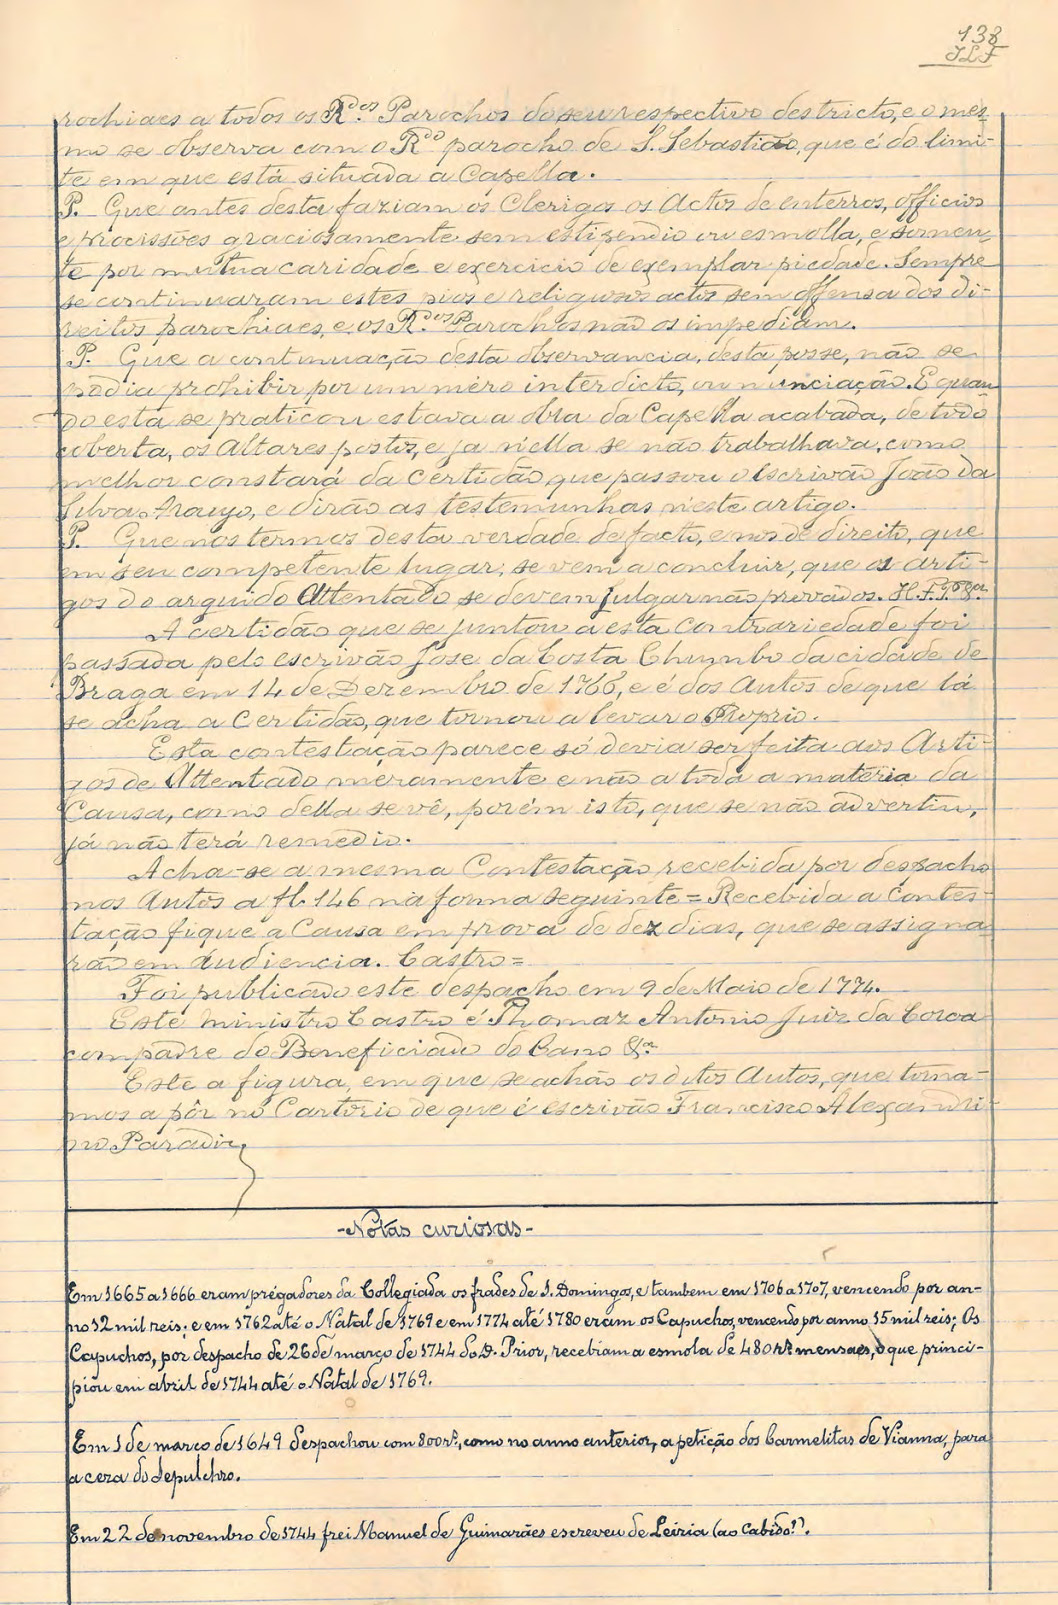 138
JLF
rochiaes a todos os R.dos Parochos do seu respectivo destricto, e o mes-
mo se observa com o R.do parocho de S. Sebastião, que é do limi-
te em que está situada a Capella.
P. Que antes desta faziam os Clerigos os Actos de enterros, officios
e procissões graciosamente sem estipendio ou esmolla, e somen-
te por mutua caridade e exercicio de exemplar piedade. Sempre
se continuaram estes pios e religiosos actos sem offensa dos di-
reitos parochiaes, e os R.dos Parochos não os impediam.
P. Que a continuação desta observancia, desta posse, não se
podia prohibir por um méro interdicto, ou nunciação. E quan-
do esta se praticou estava a obra da Capella acabada, de todo
coberta, os Altares postos, e ja n'ella se não trabalhava, como
melhor constará da certidão que passou o escrivão João da
Silva Araujo, e dirão as testemunhas n'este artigo.
P. Que nos termos desta verdade de facto, e nos de direito, que
em seu competente lugar, se vem a concluir, que os arti-
gos do arguido Attentado se devem julgar não provados. H. F. P. &.ª
A certidão que se juntou a esta Contrariedade foi
passada pelo escrivão José da Costa Chumbo da cidade de
Braga em 14 de Dezembro de 1766, e é dos Autos de que lá
se acha a Certidão, que tornou a levar o Proprio.
Esta contestação parece só devia ser feita aos Arti-
gos de Attentado meramente e não a toda a materia da
Causa, como della se vê, porém isto, que se não advertiu,
já não terá remedio.
Acha-se a mesma Contestação recebida por despacho
nos Autos a fl. 146 na forma seguinte = Recebida a Contes-
tação fique a Causa em prova de dez dias, que se assigna-
rão em audiencia. Castro =
Foi publicado este despacho em 9 de Maio de 1774.
Este ministro Castro é Thomaz Antonio Juiz da Coroa
compadre do Beneficiado do Cano &.ª
Este a figura, em que se achão os ditos Autos, que torna-
mos a pôr no Cartorio de que é escrivão Francisco Alexandri-
no Paradiz
- Notas curiosas -
Em 1665 a 1666 eram prégadores da Collegiada os frades de S. Domingos, e tambem em 1706 a 1707, vencendo por an-
no 12 mil reis; e em 1762 até o Natal de 1769 e em 1774 até 1780 eram os Capuchos, vencendo por anno 15 mil reis; Os
Capuchos, por despacho de 26 de março de 1744 do D. Prior, recebiam a esmola de 480 r.s mensaes, o que princi-
piou em abril de 1744 até o Natal de 1769.
Em 1 de março de 1649 despachou com 800 r.s, como no anno anterior, a petição dos Carmelitas de Vianna, para
a cera do Sepulchro.
Em 22 de novembro de 1744 frei Manuel de Guimarães escreveu de Leiria (ao Cabido?).